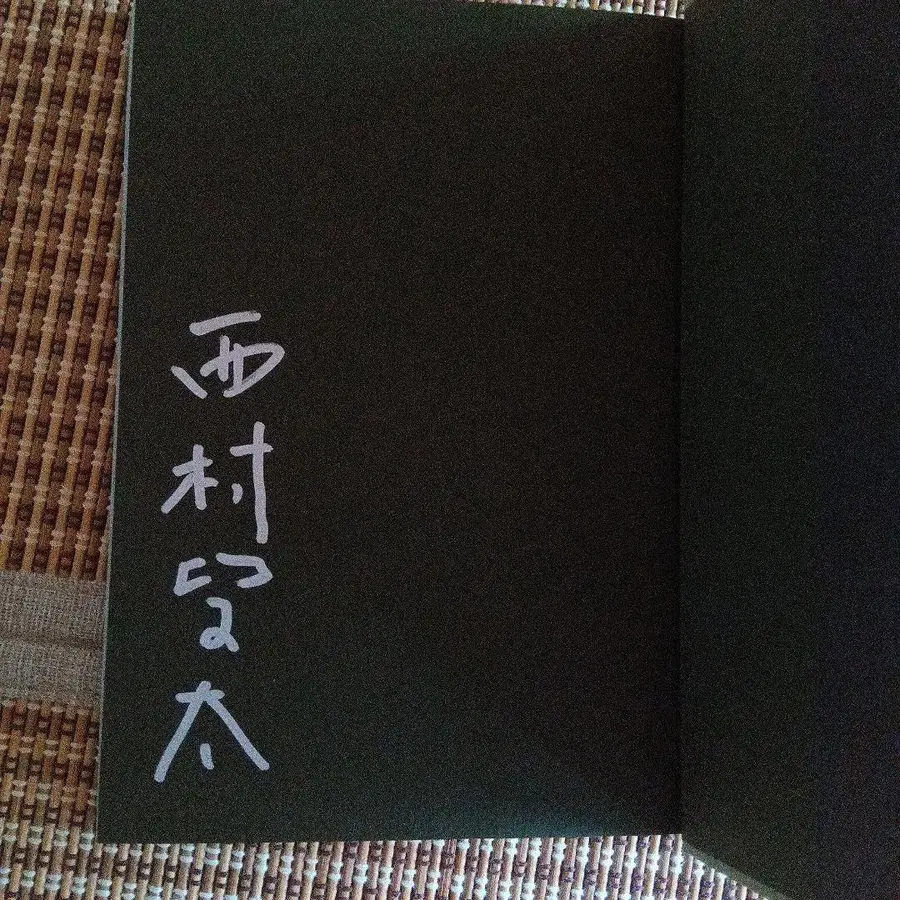 西村賢太